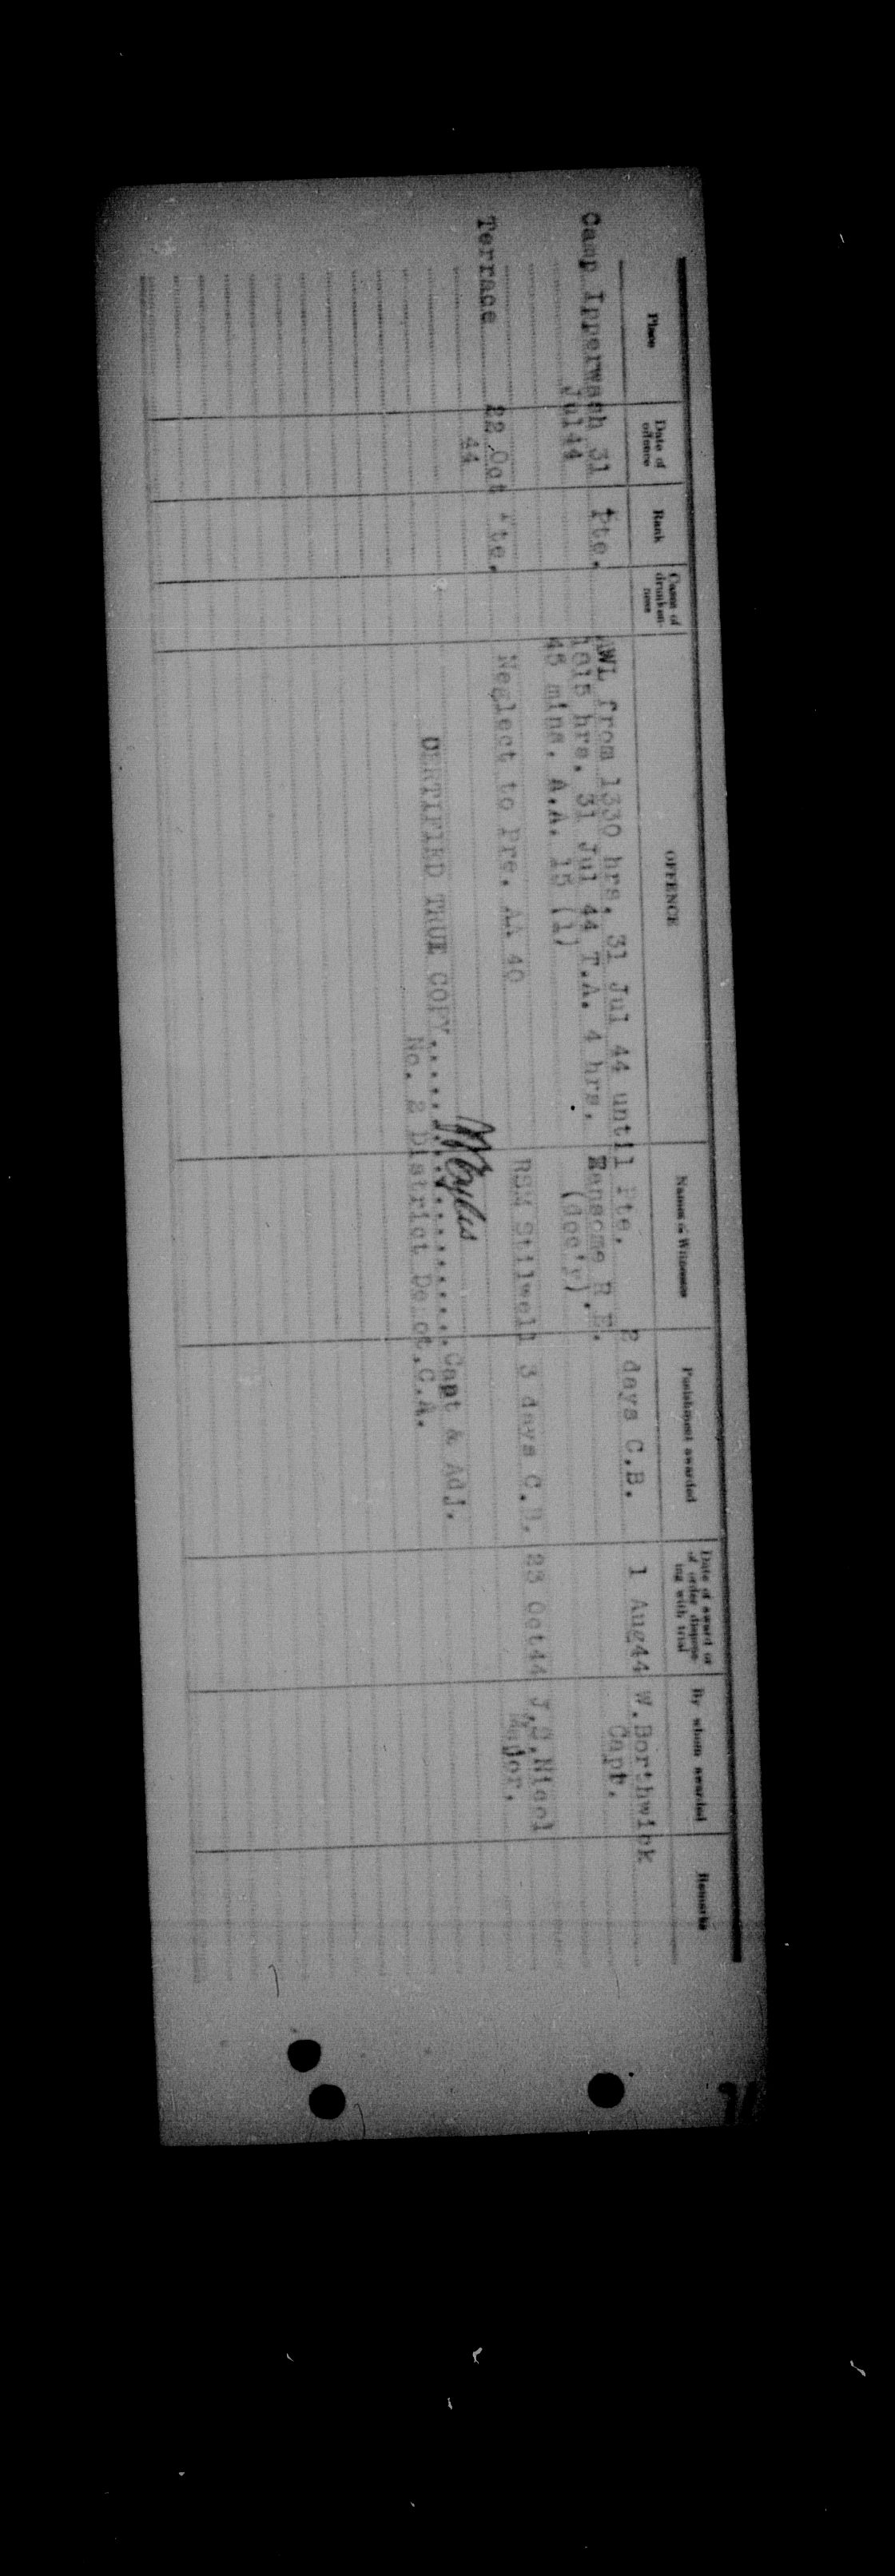 Place Date of offence Rank Cases of drunken-ness OFFENCE Names of Witnesses Punishment awarded Date of award or of order dispens-ing with trial By whom awarded Remarks
Camp Ipperwash 31 Pte. AWL from 1330 hrs. 31 Jul 44 until Pte. 2 days C.B. 1 Aug44 W.Borthwick
Jul44 hrs. 31 Jul 44 T.A. 4 hrs. Ransome R.E. Capt.
45 mins. A.A. 15 (1) (doc'y).
Terrace 22 Oct Pte. Neglect to Pre. AA 40 RSM Stilwell 3 days C.B. 23 Oct44 Nicol
44 Major.
CERTIFIED TRUE COPY.......................Capt & Adj.
No. 2 District Depot,C.A.